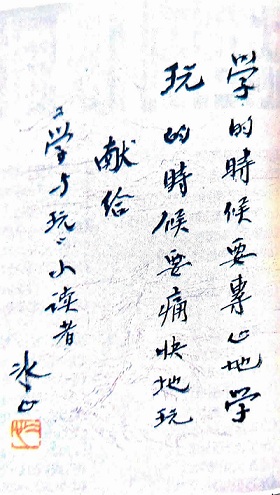 学的時候要專心地学
玩的時候要痛快地玩
献给
“学与玩”小读者
冰心